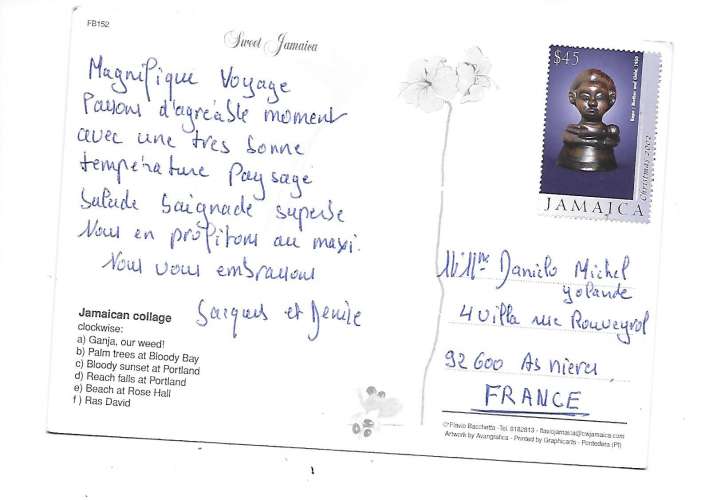 FB152
Sweet Jamaica
Magnifique Voyage
Passons d'agréable moment
avec une très bonne
température Paysage
Balade Baignade superbe
Nous en profitons au maxi.
Nous vous embrassons
Jacques et Denise
Jamaican collage
clockwise:
a) Ganja, our weed!
b) Palm trees at Bloody Bay
c) Bloody sunset at Portland
d) Reach falls at Portland
e) Beach at Rose Hall
f ) Ras David
$45
Mother and Child, 1950
Christmas 2002
JAMAICA
Danielo Michel
Yolande
4 Villa rue Rouveyrol
92600 Asnieres
FRANCE
© Flavio Bacchetta - Tel. 8182813 - flaviojamaica@cwjamaica.com
Artwork by Avangrafica - Printed by Graphicards - Pontedera (PI)